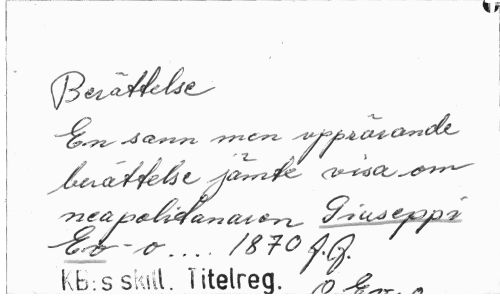 Berättelse
En sann men upprörande
berättelse jämte visa om
neapolitanaren Giuseppi
Ev-o.... 1870 f.f.
KB:s skill. Titelreg.